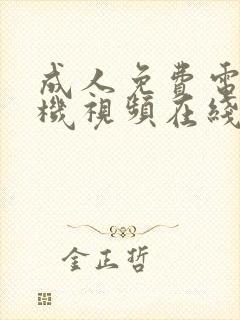 成人免費電
機視頻在綫
金正哲